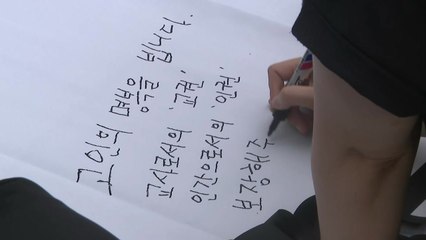 고인의 명복을 빕니다.
교사로서의 '교권'
인간으로서의 '인권'
보장해주